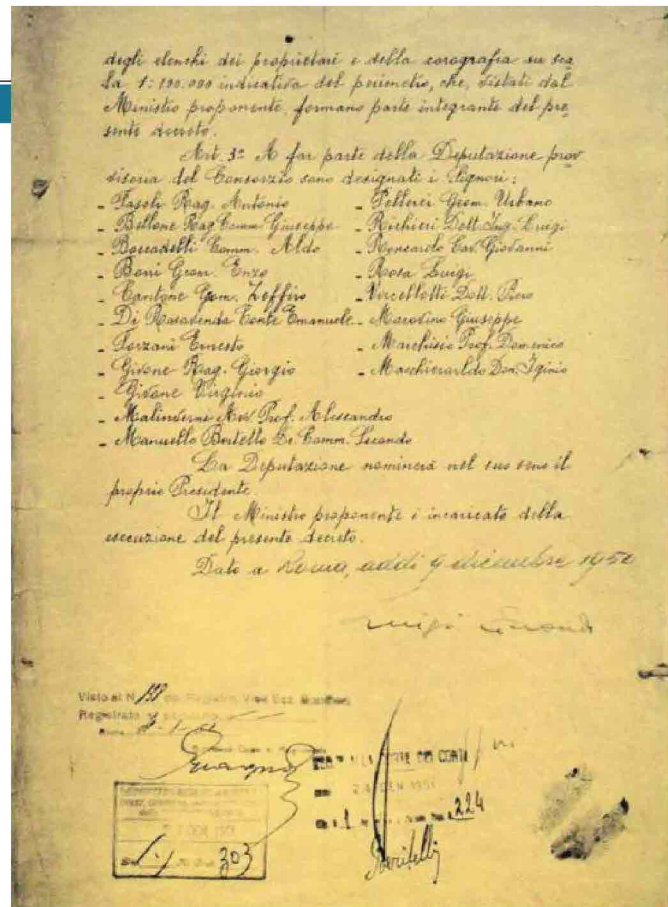 degli elenchi dei proprietari e della corografia su sca
la 1:100.000 indicativa del perimetro, che, vistati dal
Ministro proponente, formano parte integrante del pre
sente decreto.
Art. 3º A far parte della Deputazione prov
visoria del Consorzio sono designati i Signori:
- Fasoli Rag. Antonio
- Bellone Rag. Comm. Giuseppe
- Boccadelli Comm. Aldo
- Boni Geom. Enzo
- Cantone Geom. Zeffiro
- Di Rovasenda Conte Emanuele
- Forzani Ernesto
- Givone Rag. Giorgio
- Givone Virginio
- Malinverni Avv. Prof. Alessandro
- Manuello Bertetto Dr. Comm. Secondo
- Petterei Geom. Urbano
- Richieri Dott. Ing. Luigi
- Roncarolo Cav. Giovanni
- Rosa Luigi
- Vercellotti Dott. Piero
- Marovino Giuseppe
- Marchisio Prof. Domenico
- Marchierardo Don. Iginio
La Deputazione nominerà nel suo seno il
proprio Presidente.
Il Ministro proponente è incaricato della
esecuzione del presente decreto.
Dato a Roma, addì 9 dicembre 1950
Luigi Einaudi
Visto al N.
Registrato
CORTE DEI CONTI
GEN 1951
224
303